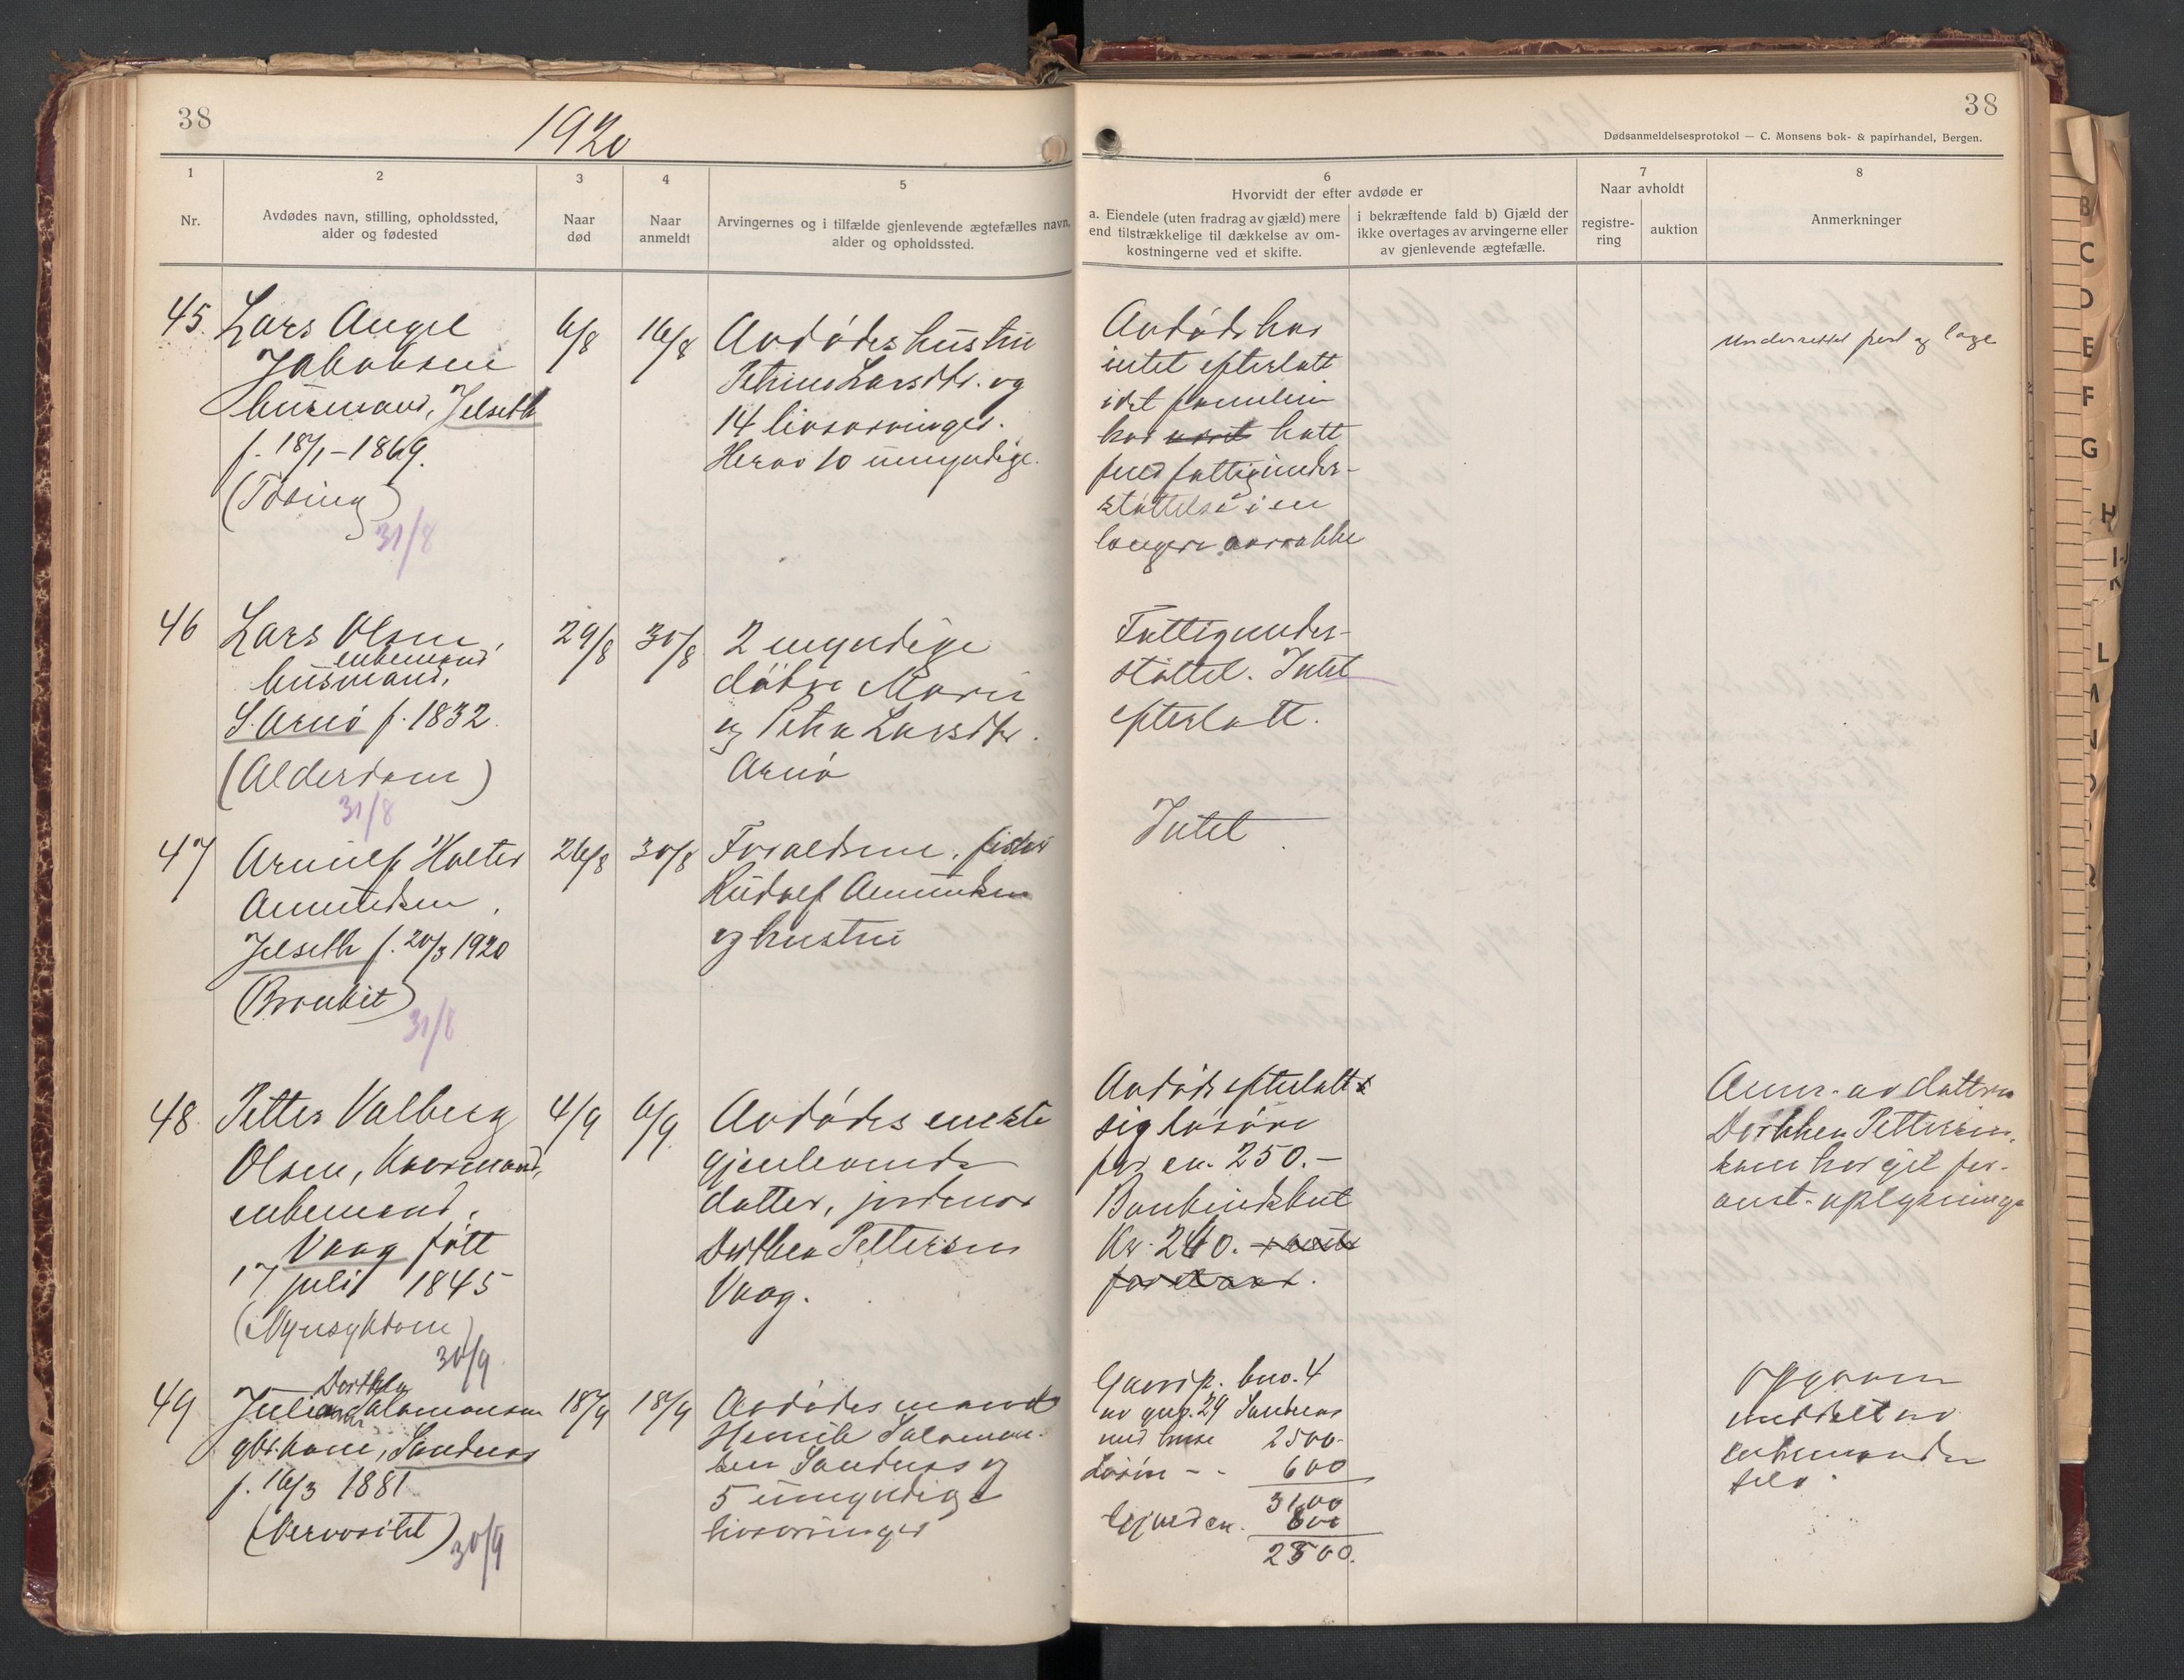 38
1920
1
2
3
4
5
Nr.
Avdødes navn, stilling, opholdssted,
alder og fødested
Naar
død
Naar
anmeldt
Arvingernes og i tilfælde gjenlevende ægtefælles navn,
alder og opholdssted.
45. Lars Angel
Jakobsen
husmand, Jelseth
f. 18/1 - 1869.
31/8
6/8
16/8
Avdødes hustru
Petrine Larsdtr. og
14 livsarvinger.
Herav 10 umyndige.
46 Lars Olsen,
enkemand
husmand,
S. Arnø f. 1832.
(Alderdom)
31/8
29/8
30/8
2 myndige
døtre Marie
og Petra Larsdtr.
Arnø
47 Arnulf Halter
Amundsen,
Jelseth f. 20/3 1920
(Bronkit)
31/8
26/8
30/8
Forældrene, fisker
Rudolf Amundsen
og hustru
48. Petter Valberg
Olsen, Kaarmand,
enkemand,
Vaag født
17 juli 1845
(Nyresykdom)
30/9
4/9
6/9
Avdødes eneste
gjenlevende
datter, jordmor
Dorthea Pettersen
Vaag.
49 Dorthea
Salomonsen
gbr.kone, Sandnes
f. 16/3 1881
(Nervøsitet)
30/9
18/9
18/9
Avdødes mand
Henrik Salomon-
sen Sandnes og
5 umyndige
livsarvinger
38
Dødsanmeldelsesprotokol — C. Monsens bok- & papirhandel, Bergen.
6
Hvorvidt der efter avdøde er
a. Eiendele (uten fradrag av gjæld) mere
end tilstrækkelige til dækkelse av om-
kostningerne ved et skifte.
i bekræftende fald b) Gjæld der
ikke overtages av arvingerne eller
av gjenlevende ægtefælle.
7
Naar avholdt
registre-
ring
auktion
8
Anmerkninger
Avdøde har
intet efterlatt
idet familien
har været hatt
fuld fattigunder-
støttelse i en
længere aarrække
Fattigunder-
støttet. Intet
efterlatt.
Intet
Avdøde efterlatt
sig løsøre
for en. 250.-
Bankindskut
Kr. 240.
Gaarsp. bno. 4
av gno. 29 Sandnes
med huse 2500.-
Løsøre - - 600
3100
Gjæld en. 600
2500.
Underrettet
Anm. av datteren
Dorthea Pettersen,
som har git for-
anst. oplysninger
Opgaven
meddelt av
enkemanden
selv.